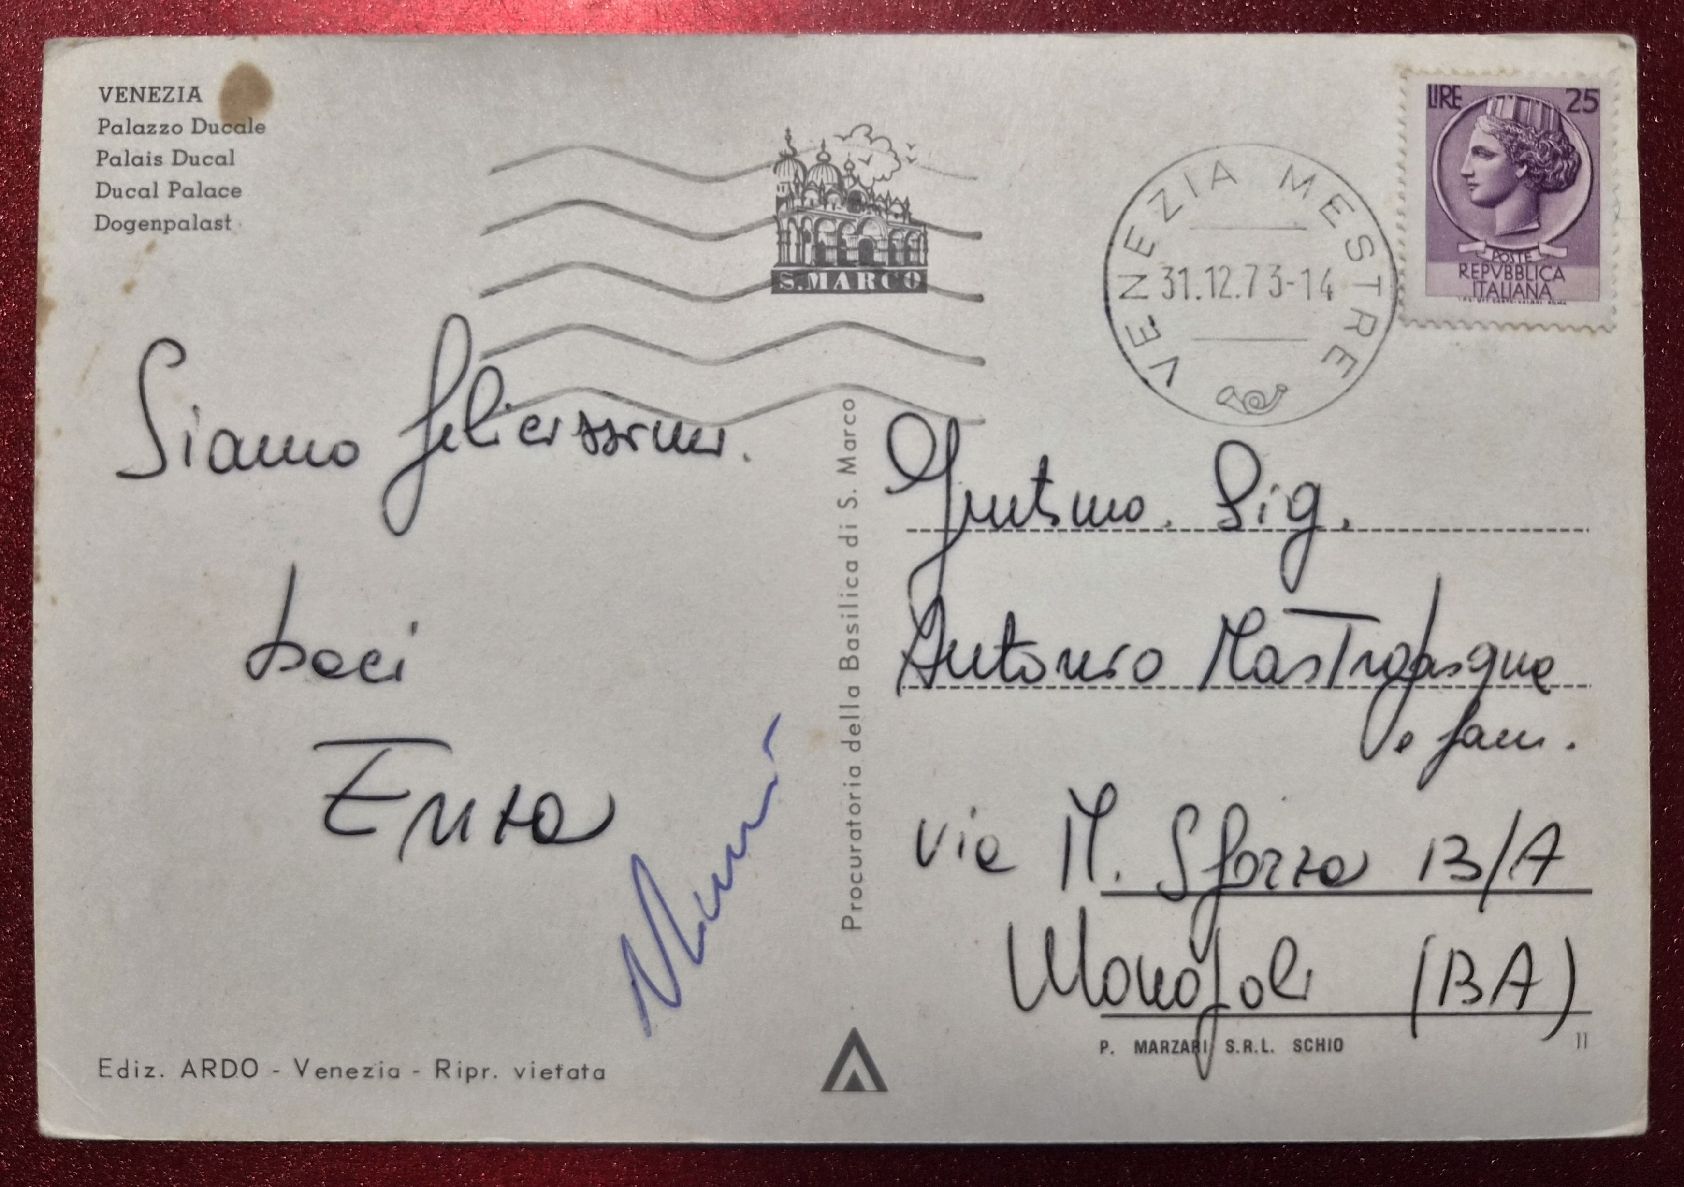 VENEZIA
Palazzo Ducale
Palais Ducal
Ducal Palace
Dogenpalast
S. MARCO
VENEZIA MESTRE
31.12.73-14
LIRE 25
POSTE
REPVBBLICA
ITALIANA
Siamo felicissimi.
baci
Enza
Procuratoria della Basilica di S. Marco
Gentsmo. Sig.
Antonio Mastropasqua
e fam.
via M. Sforza 13/A
Monopoli (BA)
Ediz. ARDO - Venezia - Ripr. vietata
P. MARZARI S.R.L. SCHIO
11